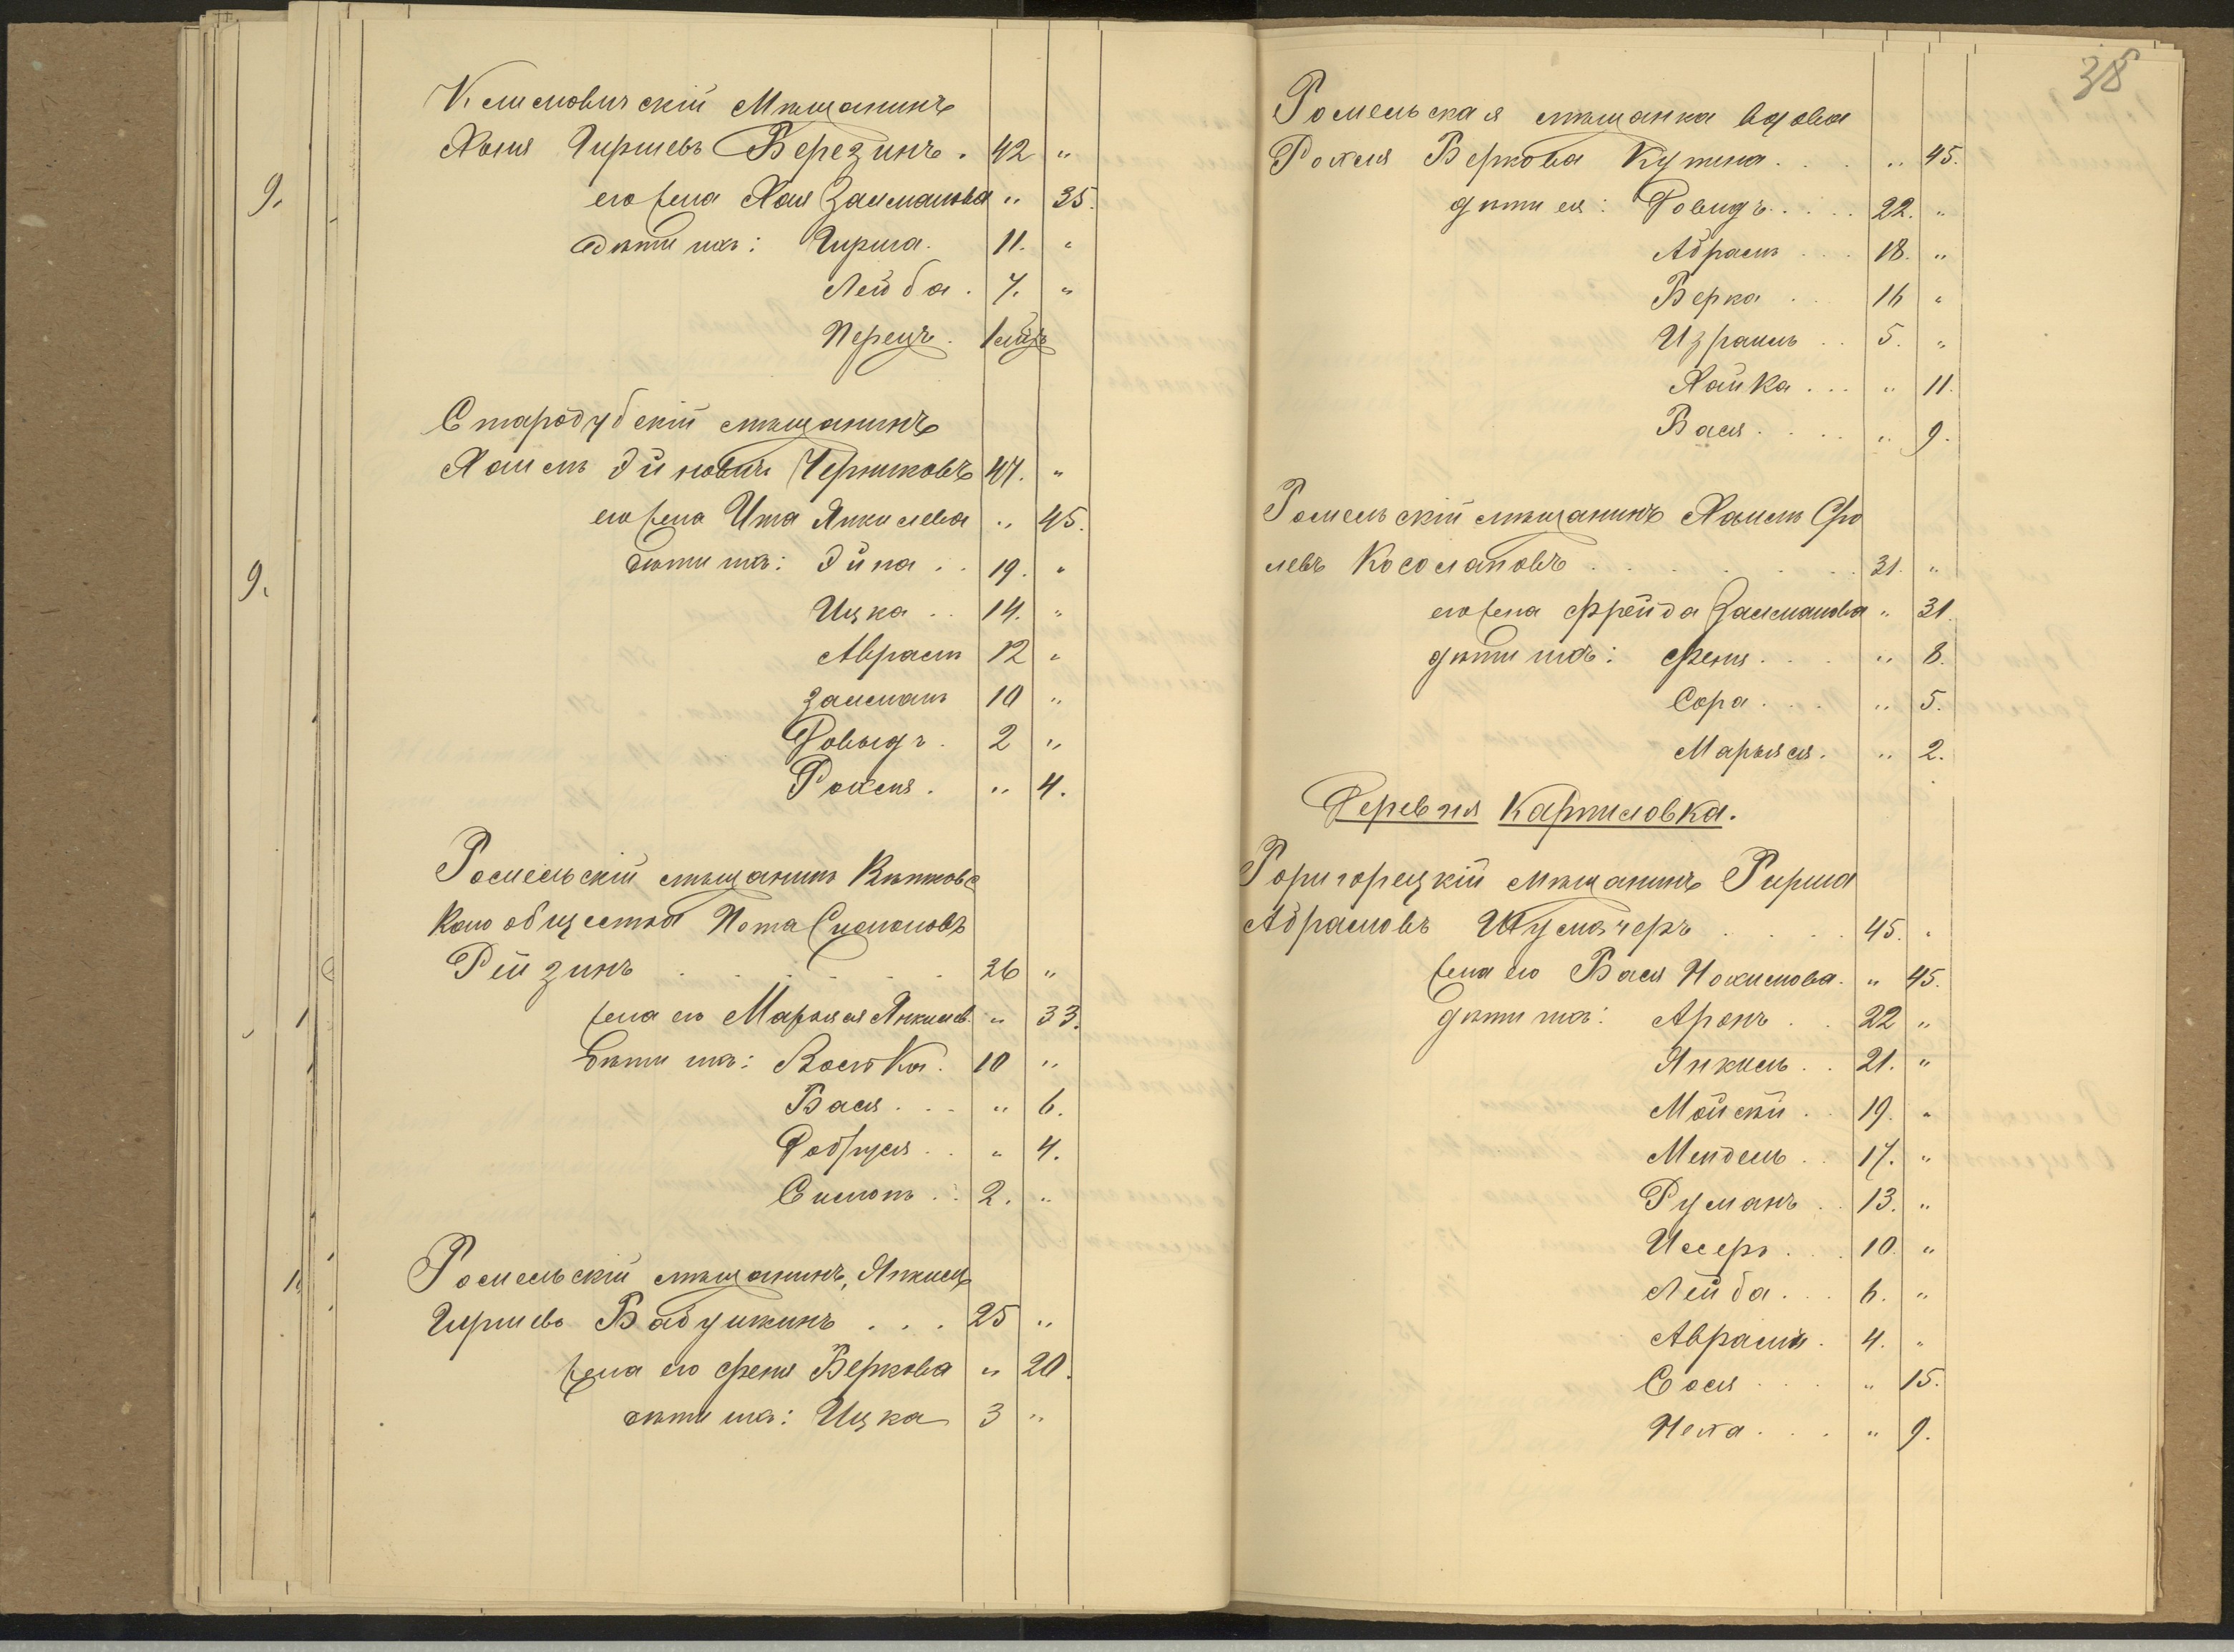 Климовичскій Мѣщанинъ
Хаим Гиршевъ Березинъ . 42 "
его жена Хая Залманова " 35.
Дѣти ихъ: Гирша . 11. "
Лейба . 7. "
Перецъ . 1
Стародубскій мѣщанинъ
Хаимъ Эйновичъ Черняковъ 47. "
его жена Ита Янкилева " 45.
дѣти ихъ: Эйна . . 19. "
Ицка . . 14. "
Авраамъ 12 "
Залманъ 10 "
Довыдъ . 2 "
Рохля . " 4.
Гомельскій мѣщанинъ Вѣтковс
каго общества Нота Симоновъ
Рейзинъ . . . . . . 26 "
жена его Марьяся Янкилев. " 33.
Дѣти ихъ: 10 "
Бася . . . " 6.
Добруся . . " 4.
Симонъ . . 2. "
Гомельскій мѣщанинъ, Янкиль
Гиршевъ Бабушкинъ . . . 25 "
жена его Феня Беркова " 20.
дѣти ихъ: Ицка 3 "
38
Гомельская мѣщанка вдова
Рохля Беркова Кутина . . . " 45.
дѣти ея: Довидъ . . . . 22. "
Абрамъ . . . 18. "
Берка . . 16 "
Израиль . . 5. "
Хайка . . . " 11.
Бася . . . . " 9.
Гомельскій мѣщанинъ Хаимъ Сро
левъ Косолаповъ . . . . . . . 31. "
его жена Фрейда Залманова " 31.
дѣти ихъ: Феня . . . . " 8.
Сора . . . . " 5.
Марьяся . " 2.
Деревня Картиловка.
Горигорецкій мѣщанинъ Гирша
Абрамовъ Шумахеръ . . . . 45. "
жена его Бася Нохимова . " 45.
дѣти ихъ: Аронъ . . 22 "
Янкиль . . 21. "
19. "
Мендель . . 17. "
Руманъ . . 13. "
Иссеръ . . . 10. "
Лейба . . . 6. "
Авраамъ . 4. "
Сося . . . . " 15.
Неха . . . . " 9.
9.
9.
1.